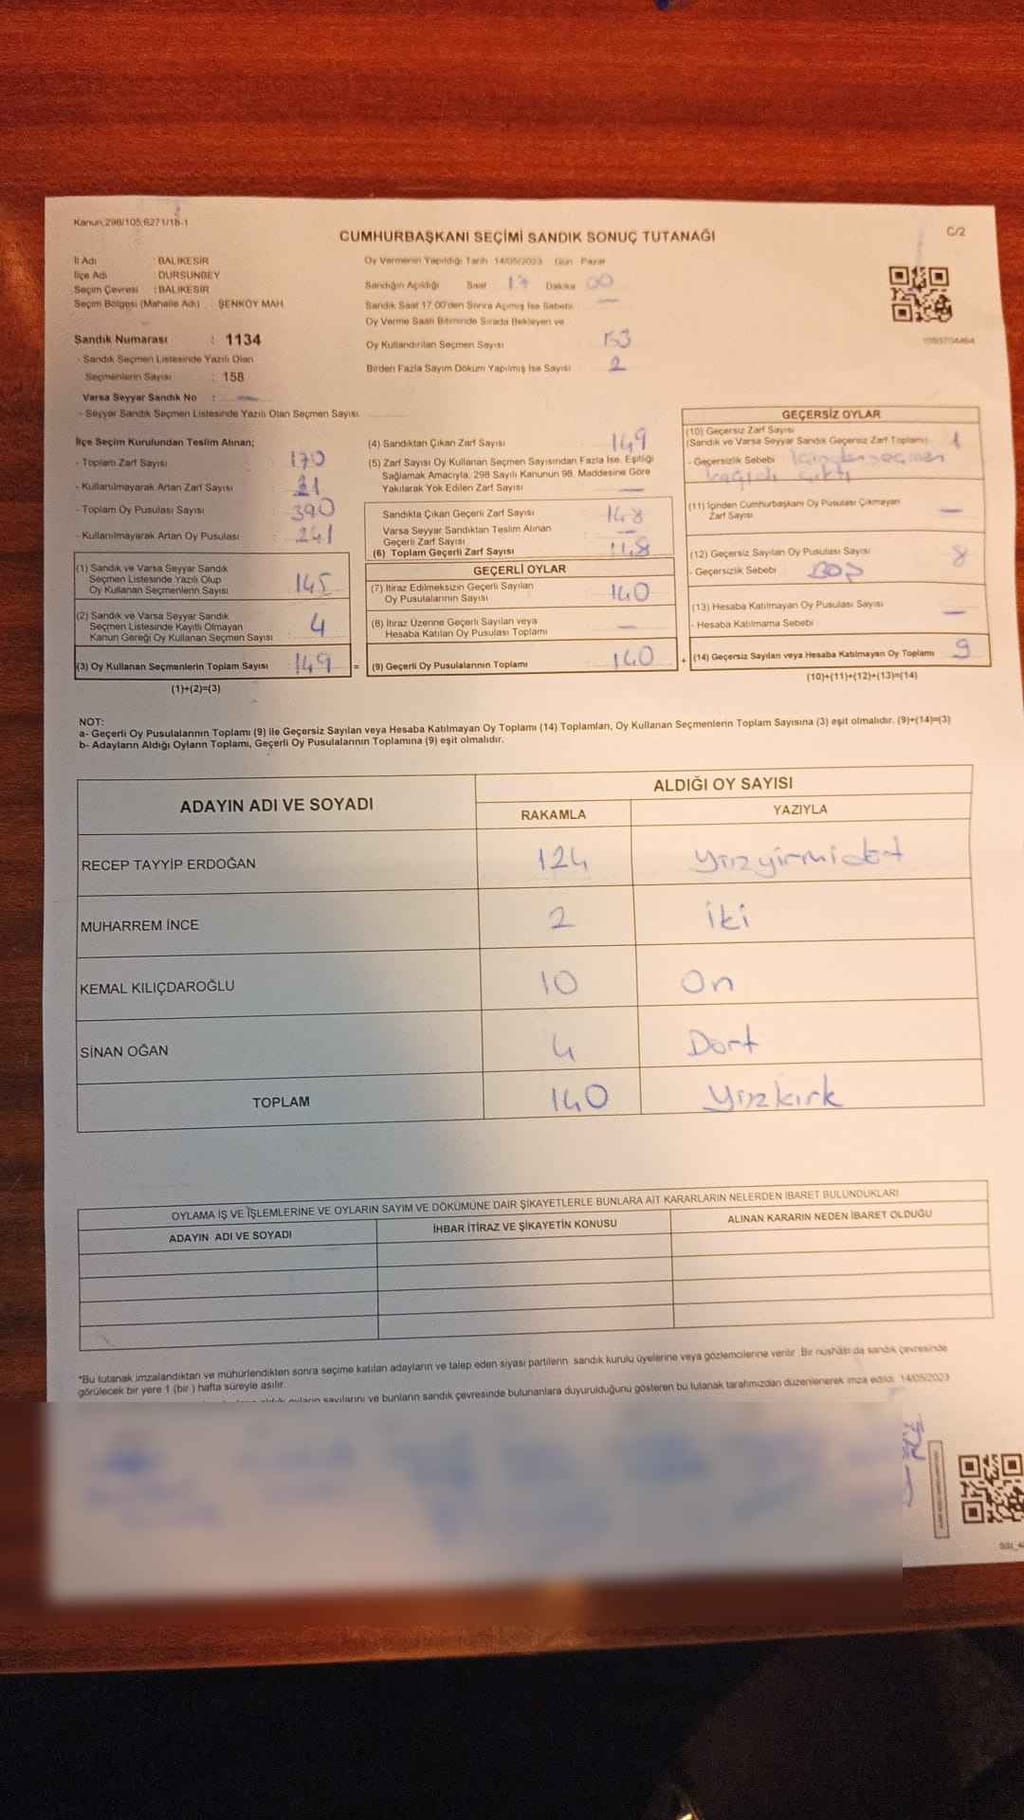 Kanun 298/105,6271/18-1
CUMHURBAŞKANI SEÇİMİ SANDIK SONUÇ TUTANAĞI
C/2
İl Adı : BALIKESİR
İlçe Adı : DURSUNBEY
Seçim Çevresi : BALIKESİR
Seçim Bölgesi (Mahalle Adı) : ŞENKÖY MAH
Oy Vermenin Yapıldığı Tarih 14/05/2023 Gün Pazar
Sandığın Açıldığı Saat 17 Dakika 00
Sandık Saat 17.00'den Sonra Açılmış İse Sebebi —
Oy Verme Saati Bitiminde Sırada Bekleyen ve
Oy Kullandırılan Seçmen Sayısı
Birden Fazla Sayım Döküm Yapılmış İse Sayısı 2
Sandık Numarası : 1134
- Sandık Seçmen Listesinde Yazılı Olan
Seçmenlerin Sayısı : 158
Varsa Seyyar Sandık No : —
- Seyyar Sandık Seçmen Listesinde Yazılı Olan Seçmen Sayısı
İlçe Seçim Kurulundan Teslim Alınan;
- Toplam Zarf Sayısı 170
- Kullanılmayarak Artan Zarf Sayısı 21
- Toplam Oy Pusulası Sayısı 390
- Kullanılmayarak Artan Oy Pusulası 241
(1) Sandık ve Varsa Seyyar Sandık
Seçmen Listesinde Yazılı Olup
Oy Kullanan Seçmenlerin Sayısı 145
(2) Sandık ve Varsa Seyyar Sandık
Seçmen Listesinde Kayıtlı Olmayan
Kanun Gereği Oy Kullanan Seçmen Sayısı 4
(3) Oy Kullanan Seçmenlerin Toplam Sayısı 149 =
(1)+(2)=(3)
(4) Sandıktan Çıkan Zarf Sayısı 149
(5) Zarf Sayısı Oy Kullanan Seçmen Sayısından Fazla İse, Eşitliği
Sağlamak Amacıyla, 298 Sayılı Kanunun 98. Maddesine Göre
Yakılarak Yok Edilen Zarf Sayısı —
Sandıkta Çıkan Geçerli Zarf Sayısı 148
Varsa Seyyar Sandıktan Teslim Alınan
Geçerli Zarf Sayısı —
(6) Toplam Geçerli Zarf Sayısı 148
GEÇERLİ OYLAR
(7) İtiraz Edilmeksizin Geçerli Sayılan
Oy Pusulalarının Sayısı 140
(8) İtiraz Üzerine Geçerli Sayılan veya
Hesaba Katılan Oy Pusulası Toplamı —
(9) Geçerli Oy Pusulalarının Toplamı 140 +
GEÇERSİZ OYLAR
(10) Geçersiz Zarf Sayısı
(Sandık ve Varsa Seyyar Sandık Geçersiz Zarf Toplamı) 1
- Geçersizlik Sebebi İçinden seçmen
kağıdı çıktı
(11) İçinden Cumhurbaşkanı Oy Pusulası Çıkmayan
Zarf Sayısı —
(12) Geçersiz Sayılan Oy Pusulası Sayısı 8
- Geçersizlik Sebebi BOŞ
(13) Hesaba Katılmayan Oy Pusulası Sayısı —
- Hesaba Katılmama Sebebi
(14) Geçersiz Sayılan veya Hesaba Katılmayan Oy Toplamı 9
(10)+(11)+(12)+(13)=(14)
NOT:
a- Geçerli Oy Pusulalarının Toplamı (9) ile Geçersiz Sayılan veya Hesaba Katılmayan Oy Toplamı (14) Toplamları, Oy Kullanan Seçmenlerin Toplam Sayısına (3) eşit olmalıdır. (9)+(14)=(3)
b- Adayların Aldığı Oyların Toplamı, Geçerli Oy Pusulalarının Toplamına (9) eşit olmalıdır.
ADAYIN ADI VE SOYADI
ALDIĞI OY SAYISI
RAKAMLA YAZIYLA
RECEP TAYYİP ERDOĞAN 124 Yüzyirmidört
MUHARREM İNCE 2 İki
KEMAL KILIÇDAROĞLU 10 On
SİNAN OĞAN 4 Dört
TOPLAM 140 Yüzkırk
OYLAMA İŞ VE İŞLEMLERİNE VE OYLARIN SAYIM VE DÖKÜMÜNE DAİR ŞİKAYETLERLE BUNLARA AİT KARARLARIN NELERDEN İBARET BULUNDUKLARI
ADAYIN ADI VE SOYADI İHBAR İTİRAZ VE ŞİKAYETİN KONUSU ALINAN KARARIN NEDEN İBARET OLDUĞU
*Bu tutanak imzalandıktan ve mühürlendikten sonra seçime katılan adayların ve talep eden siyasi partilerin sandık kurulu üyelerine veya gözlemcilerine verilir. Bir nushası da sandık çevresinde
görülecek bir yere 1 (bir ) hafta süreyle asılır.
oyların sayılarını ve bunların sandık çevresinde bulunanlara duyurulduğunu gösteren bu tutanak tarafımızdan düzenlenerek imza edildi. 14/05/2023